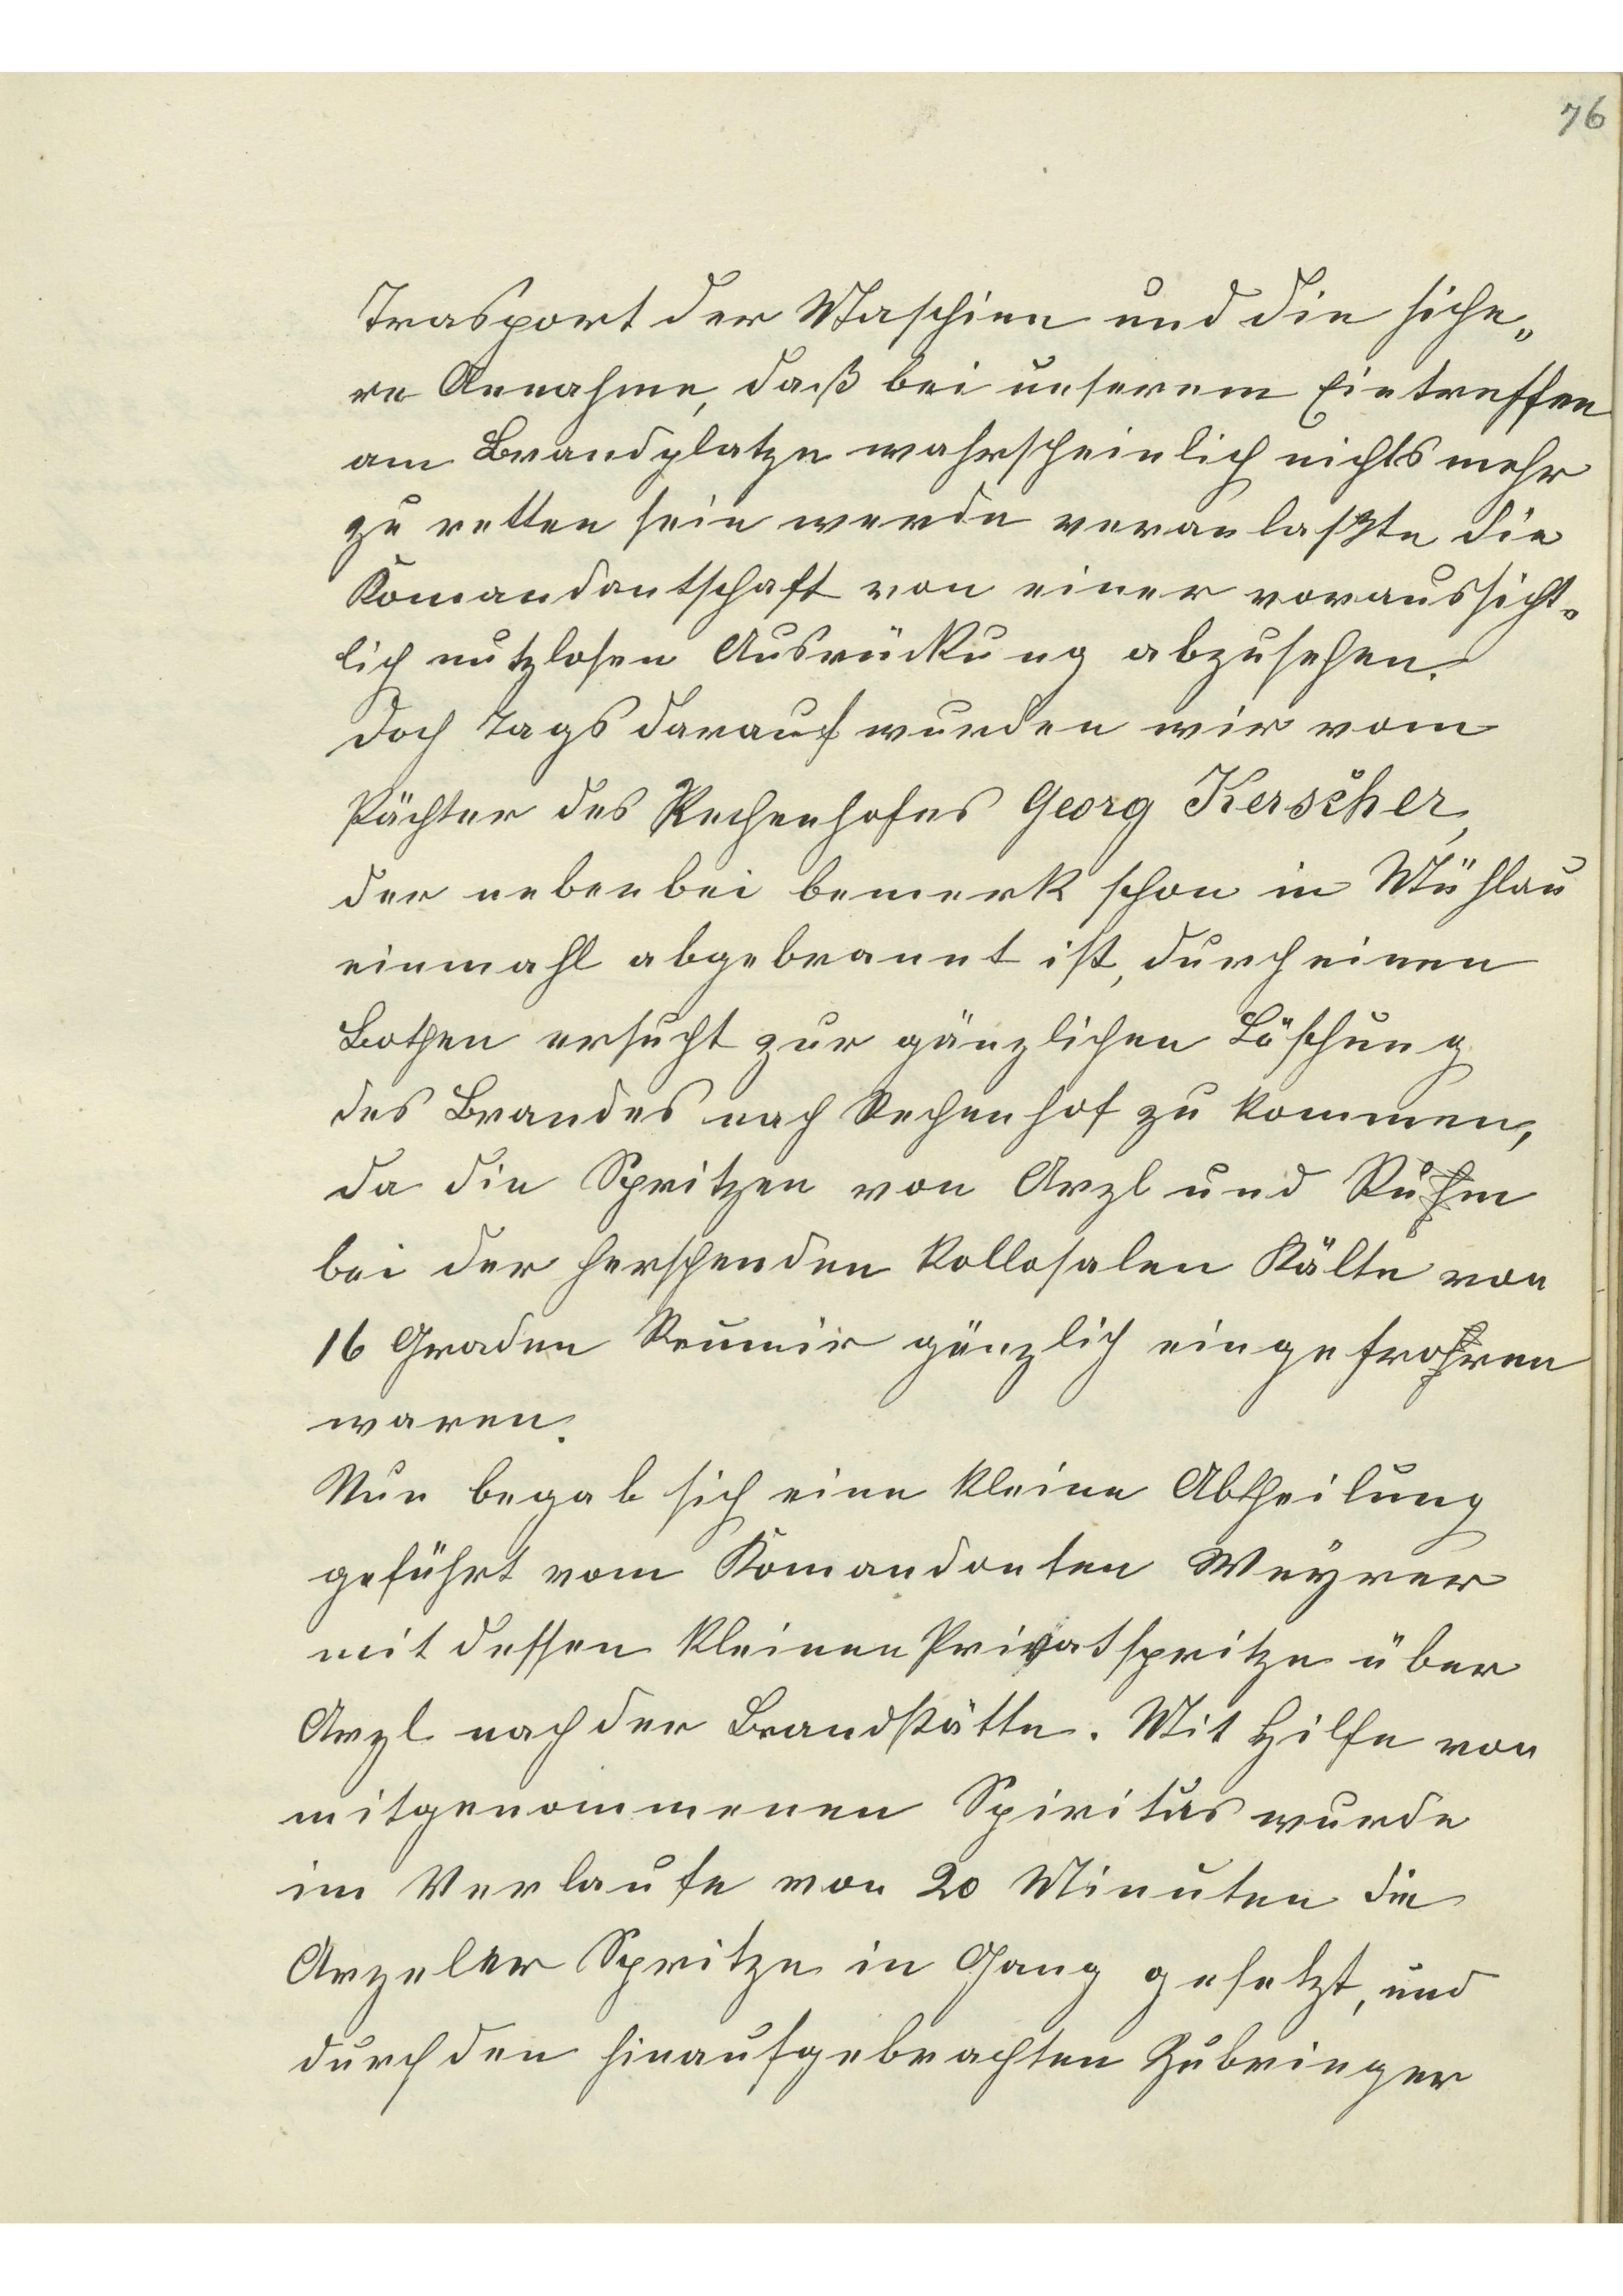 76
Trasport der Maschine und die siche„
re Annahme, daß bei unserem Eintreffen
am Brandplatze wahrscheinlich nichts mehr
zu retten sein werde veranlaßte die
Komandantschaft von einer voraussicht„
lich nutzlosen Ausrückung abzusehen.
Doch Tags darauf wurden wir vom
Pächter des Rechenhofes Georg Kerscher,
der nebenbei bemerk schon in Mühlau
einmahl abgebrannt ist, durch einen
Bothen ersucht zur gänzlichen Löschung
des Brandes nach Rechenhof zu kommen,
da die Spritzen von Arzl und
bei der herschenden kollosalen Kälte von
16 Graden Reumir gänzlich eingefrohren
waren.
Nun begab sich eine kleine Abtheilung
geführt vom Komandanten Weyrer
mit dessen kleinen Privatspritze über
Arzl nach der Brandstätte. Mit Hilfe von
mitgenommenen Spiritus wurde
im Verlaufe von 20 Minuten die
Arzeler Spritze in Gang gesetzt, und
durch den hinaufgebrachten Zubringer